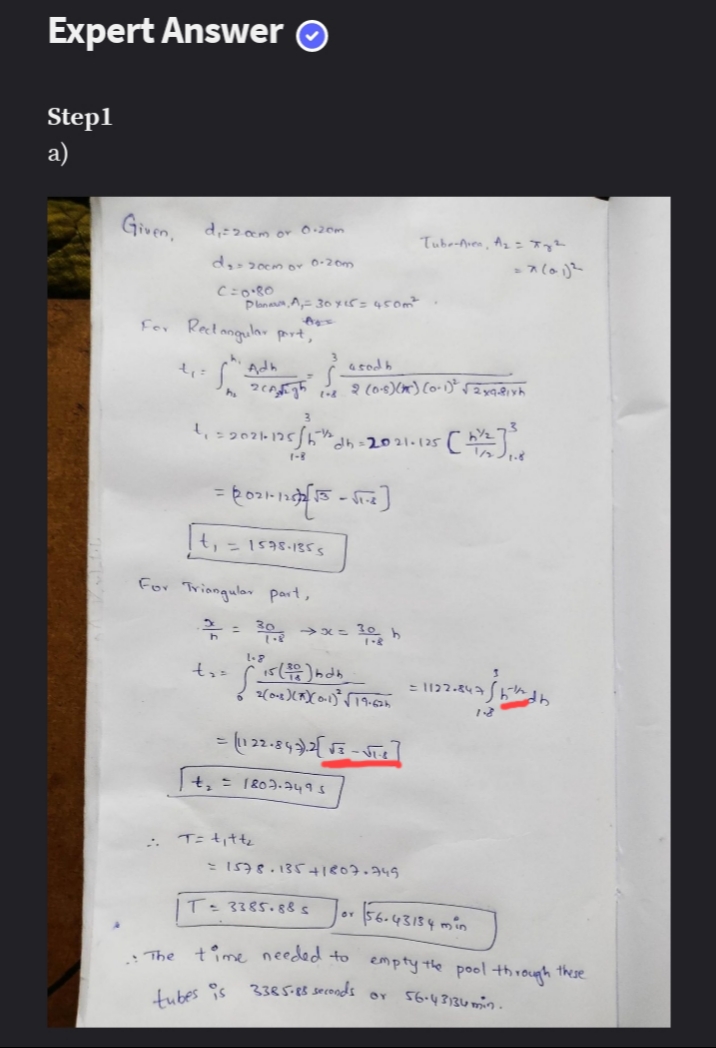 Expert Answer
Step1
a)
Given, d₁=20cm or 0.20m
Tube-Area, A₂ = πr²
d₂=20cm or 0.20m
= π(0.1)²
C=0.80
A₁= 30×15= 450m²
For Rectangular part,
t₁ = ∫ Adh / 2CA₂√2gh = ∫_{1.8}^{3} 450dh / 2(0.8)(π)(0.1)²√2×9.81×h
t₁ = 2021.125 ∫_{1.8}^{3} h^{-1/2} dh = 2021.125 [h^{1/2} / 1/2]_{1.8}^{3}
= (2021.125)2[√3 - √1.8]
t₁ = 1578.135s
For Triangular part,
x/h = 30/1.8 → x = 30/1.8 h
t₂ = ∫_{0}^{1.8} 15(30/1.8)hdh / 2(0.8)(π)(0.1)²√19.62h = 1122.847 ∫_{1.8}^{3} h^{-1/2} dh
= (1122.847).2[√3 - √1.8]
t₂ = 1807.749s
∴ T= t₁+t₂
= 1578.135+1807.749
T = 3385.88s or 56.43134 min
∴ The time needed to empty the pool through these
tubes is 3385.88 seconds or 56.43134min.